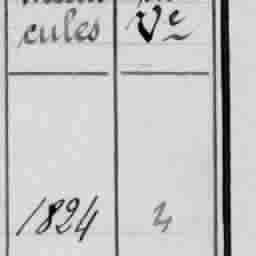 cules Ve
1824 4